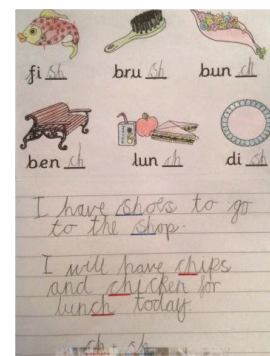 fi sh bru sh bun ch
ben ch lun ch di sh
I have shoes to go
to the shop.
I will have chips
and chicken for
lunch today
ch sh